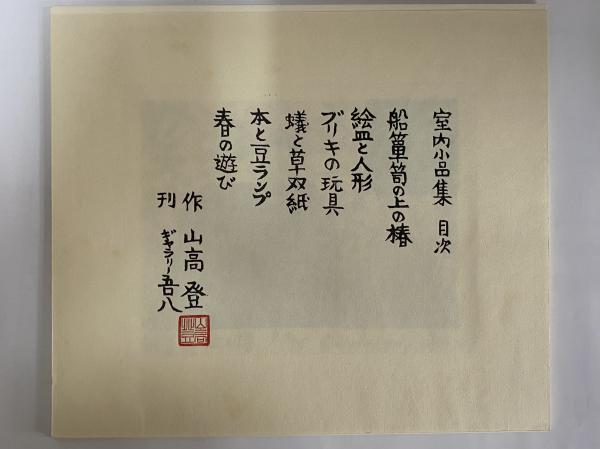 室内小品集 目次
船簞笥の上の椿
絵皿と人形
ブリキの玩具
蟻と草双紙
本と豆ランプ
春の遊び
作 山高登
刊 ギャラリー吾八